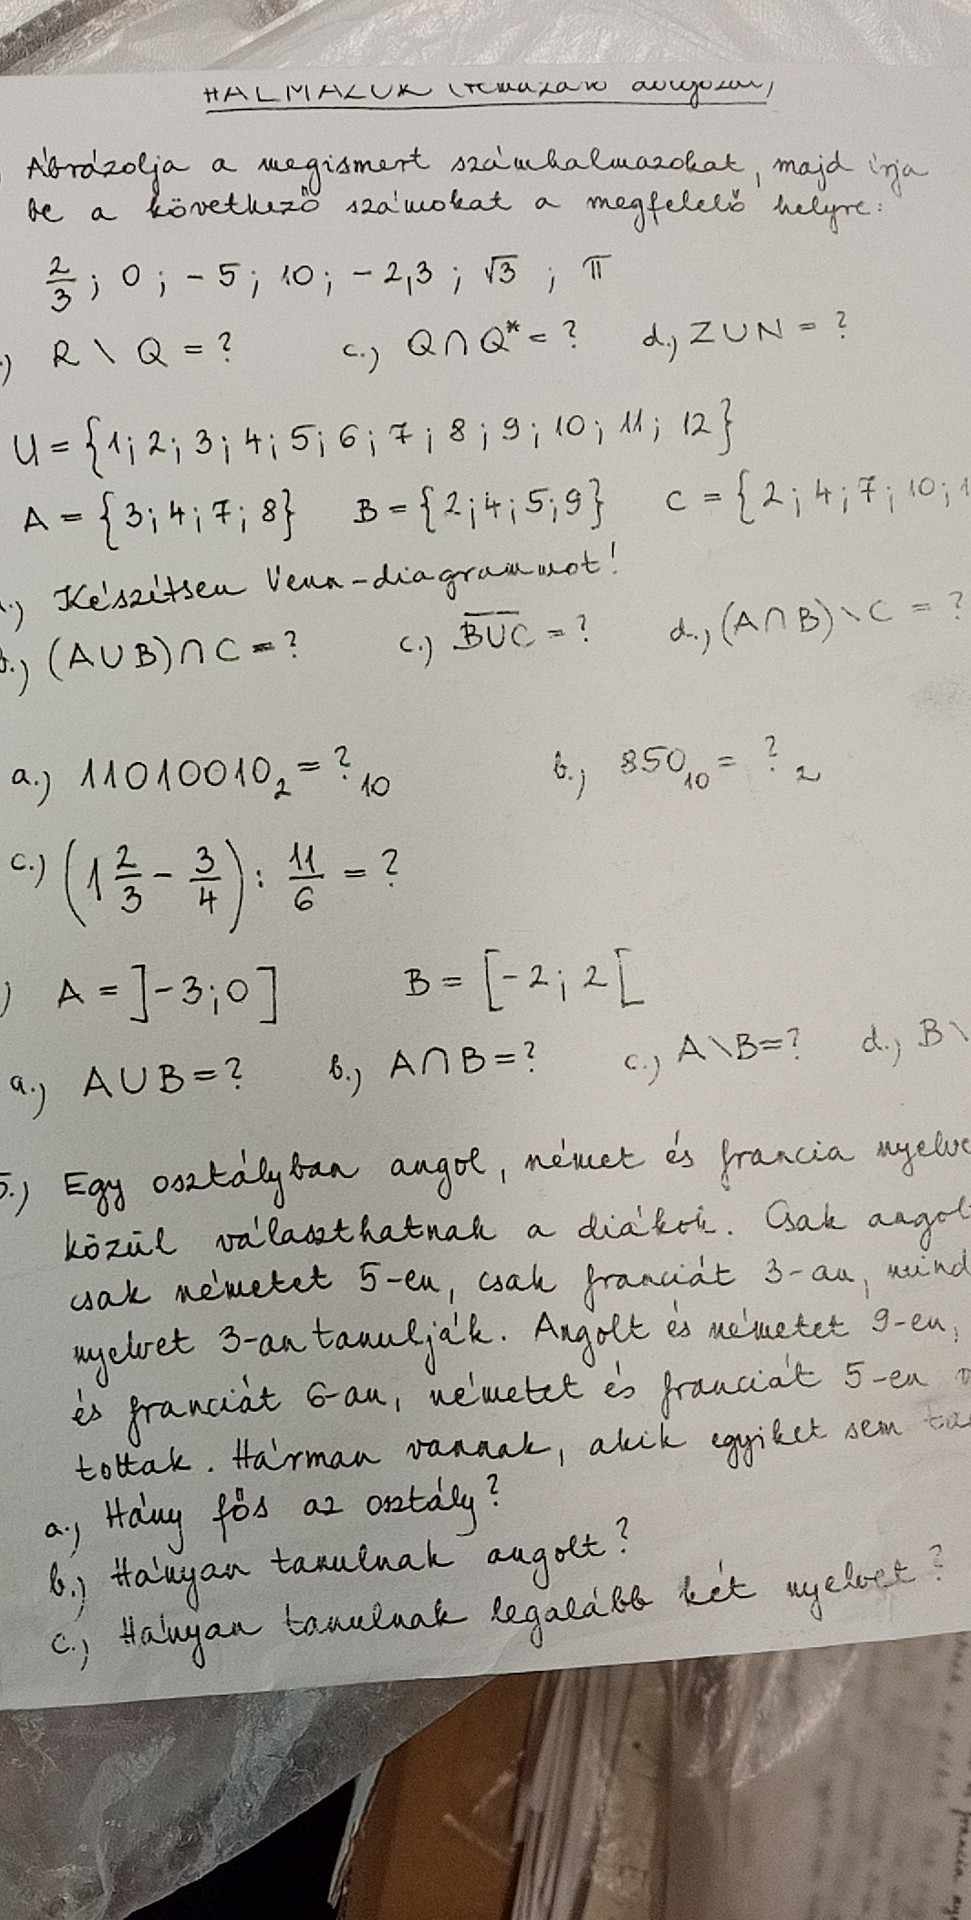 HALMAZOK (témazáró dolgozat)
Ábrázolja a megismert számhalmazokat, majd írja
be a következő számokat a megfelelő helyre:
2/3 ; 0 ; -5 ; 10 ; -2,3 ; √3 ; π
R \ Q = ? c.) Q ∩ Q* = ? d.) Z ∪ N = ?
U = {1; 2; 3; 4; 5; 6; 7; 8; 9; 10; 11; 12}
A = {3; 4; 7; 8} B = {2; 4; 5; 9} C = {2; 4; 7; 10; 1
Készítsen Venn-diagrammot!
b.) (A ∪ B) ∩ C = ? c.) \overline{B ∪ C} = ? d.) (A ∩ B) \ C = ?
a.) 11010010₂ = ?₁₀ b.) 850₁₀ = ?₂
c.) (1 2/3 - 3/4) : 11/6 = ?
A = ]-3; 0] B = [-2; 2[
a.) A ∪ B = ? b.) A ∩ B = ? c.) A \ B = ? d.) B \
5.) Egy osztályban angol, német és francia nyelve
közül választhatnak a diákok. Csak angol
csak németet 5-en, csak franciát 3-an, mind
nyelvet 3-an tanulják. Angolt és németet 9-en,
és franciát 6-an, németet és franciát 5-en
tottak. Hárman vannak, akik egyiket sem ta
a.) Hány fős az osztály?
b.) Hányan tanulnak angolt?
c.) Hányan tanulnak legalább két nyelvet?